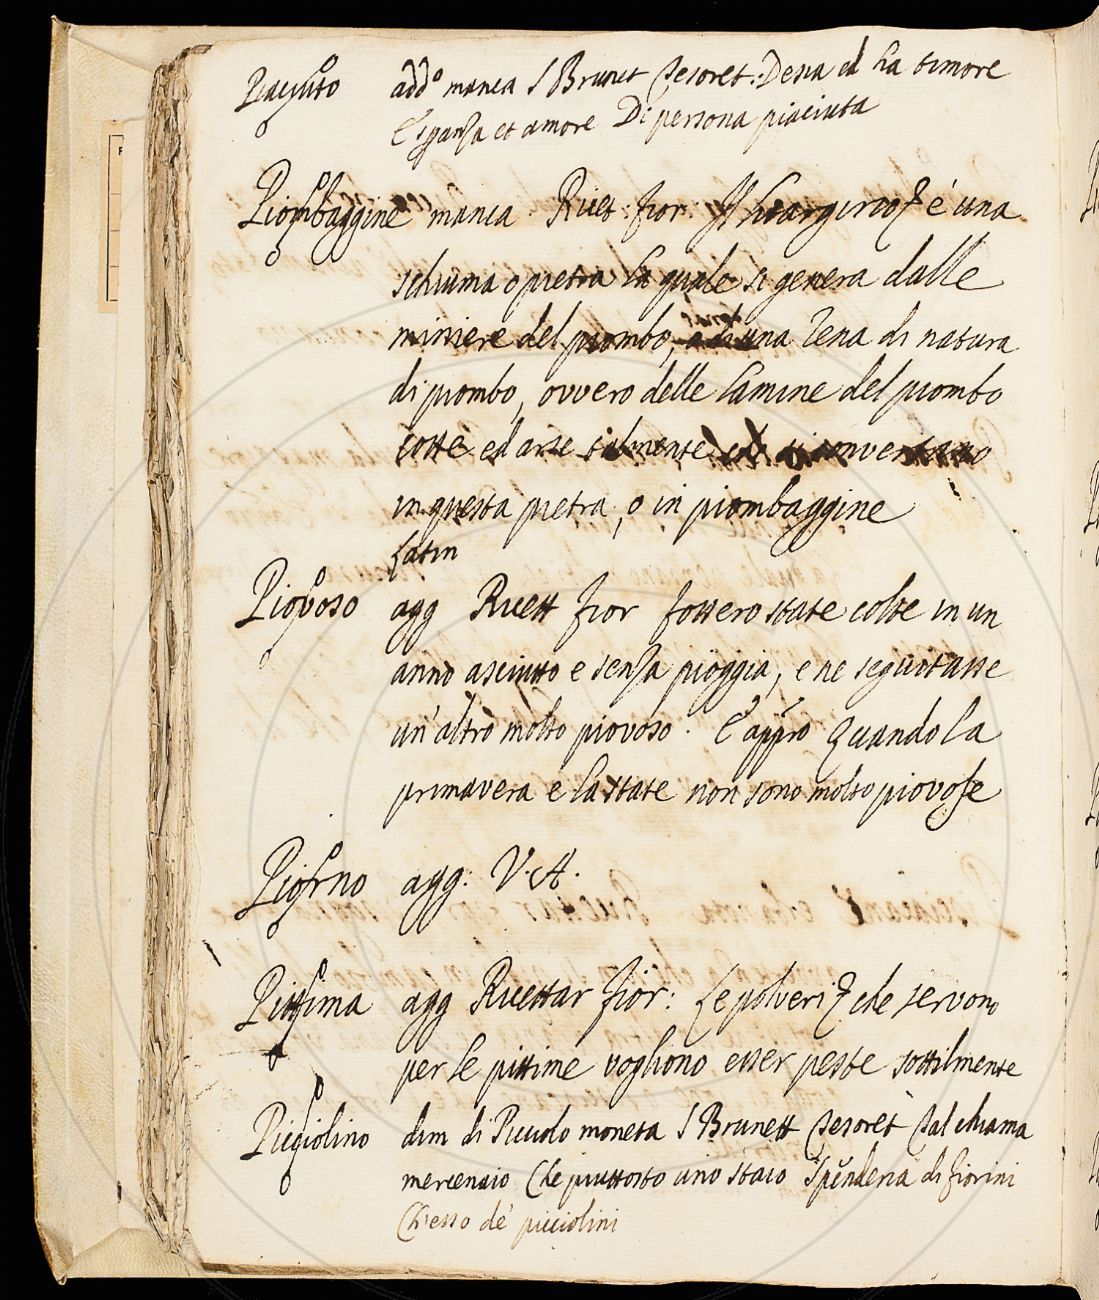 Piaciuto add.o manca S Brunet Tesoret: Desia ed ha timore
E speranza et amore Di persona piaciuta
Piombaggine manca Ricet: fior: Il litargirio è una
schiuma o pietra la quale si genera dalle
miniere del piombo, una vena di natura
di piombo, ovvero delle lamine del piombo
cotte ed arse talmente si convertano
in questa pietra, o in piombaggine
Latin
Piovoso agg Ricett fior fossero state colte in un
anno asciutto e senza pioggia, e ne seguitasse
un'altro molto piovoso. E appro quando la
primavera e la state non sono molto piovose
Piorno agg: V.A.
Pittima agg Ricettar fior: Le polveri che servono
per le pittime vogliono esser peste sottilmente
Picciolino dim di Piccolo moneta S Brunett Tesoret Tal chiama
mercennaio Che piuttosto uno staio Spenderia di fiorini
Ch'esso de' picciolini